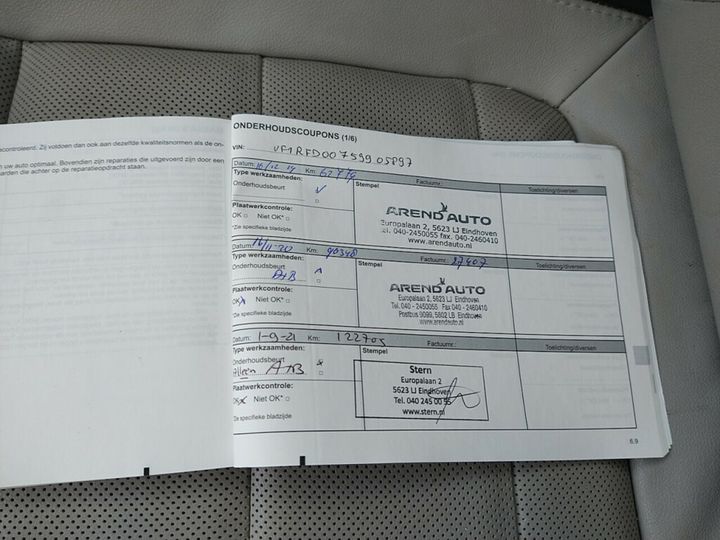 controleerd. Zij voldoen dan ook aan dezelfde kwaliteitsnormen als de on-
n uw auto optimaal. Bovendien zijn reparaties die uitgevoerd zijn door een
arden die achter op de reparatieopdracht staan.
ONDERHOUDSCOUPONS (1/6)
VIN: VF1RFD00759905897
Datum: 16/12 19 Km: Factuurnr.: Toelichting/diversen
Type werkzaamheden: Stempel
Onderhoudsbeurt
Plaatwerkcontrole:
OK Niet OK*
*Zie specifieke bladzijde
AREND AUTO
Europalaan 2, 5623 LJ Eindhoven
tel. 040-2450055 fax. 040-2460410
www.arendauto.nl
Datum: 16/11-20 Km: 90348 Factuurnr.: 27407 Toelichting/diversen
Type werkzaamheden: Stempel
Onderhoudsbeurt
A+B
Plaatwerkcontrole:
OK Niet OK*
*Zie specifieke bladzijde
AREND AUTO
Europalaan 2, 5623 LJ Eindhoven
Tel. 040 - 2450055 Fax 040 - 2460410
Postbus 9099, 5602 LB Eindhoven
www.arendauto.nl
Datum: 1-9-21 Km: 122705 Factuurnr.: Toelichting/diversen
Type werkzaamheden: Stempel
Onderhoudsbeurt
Alleen A+B
Plaatwerkcontrole:
OK Niet OK*
*Zie specifieke bladzijde
Stern
Europalaan 2
5623 LJ Eindhoven
Tel. 040 245 00 55
www.stern.nl
6.9